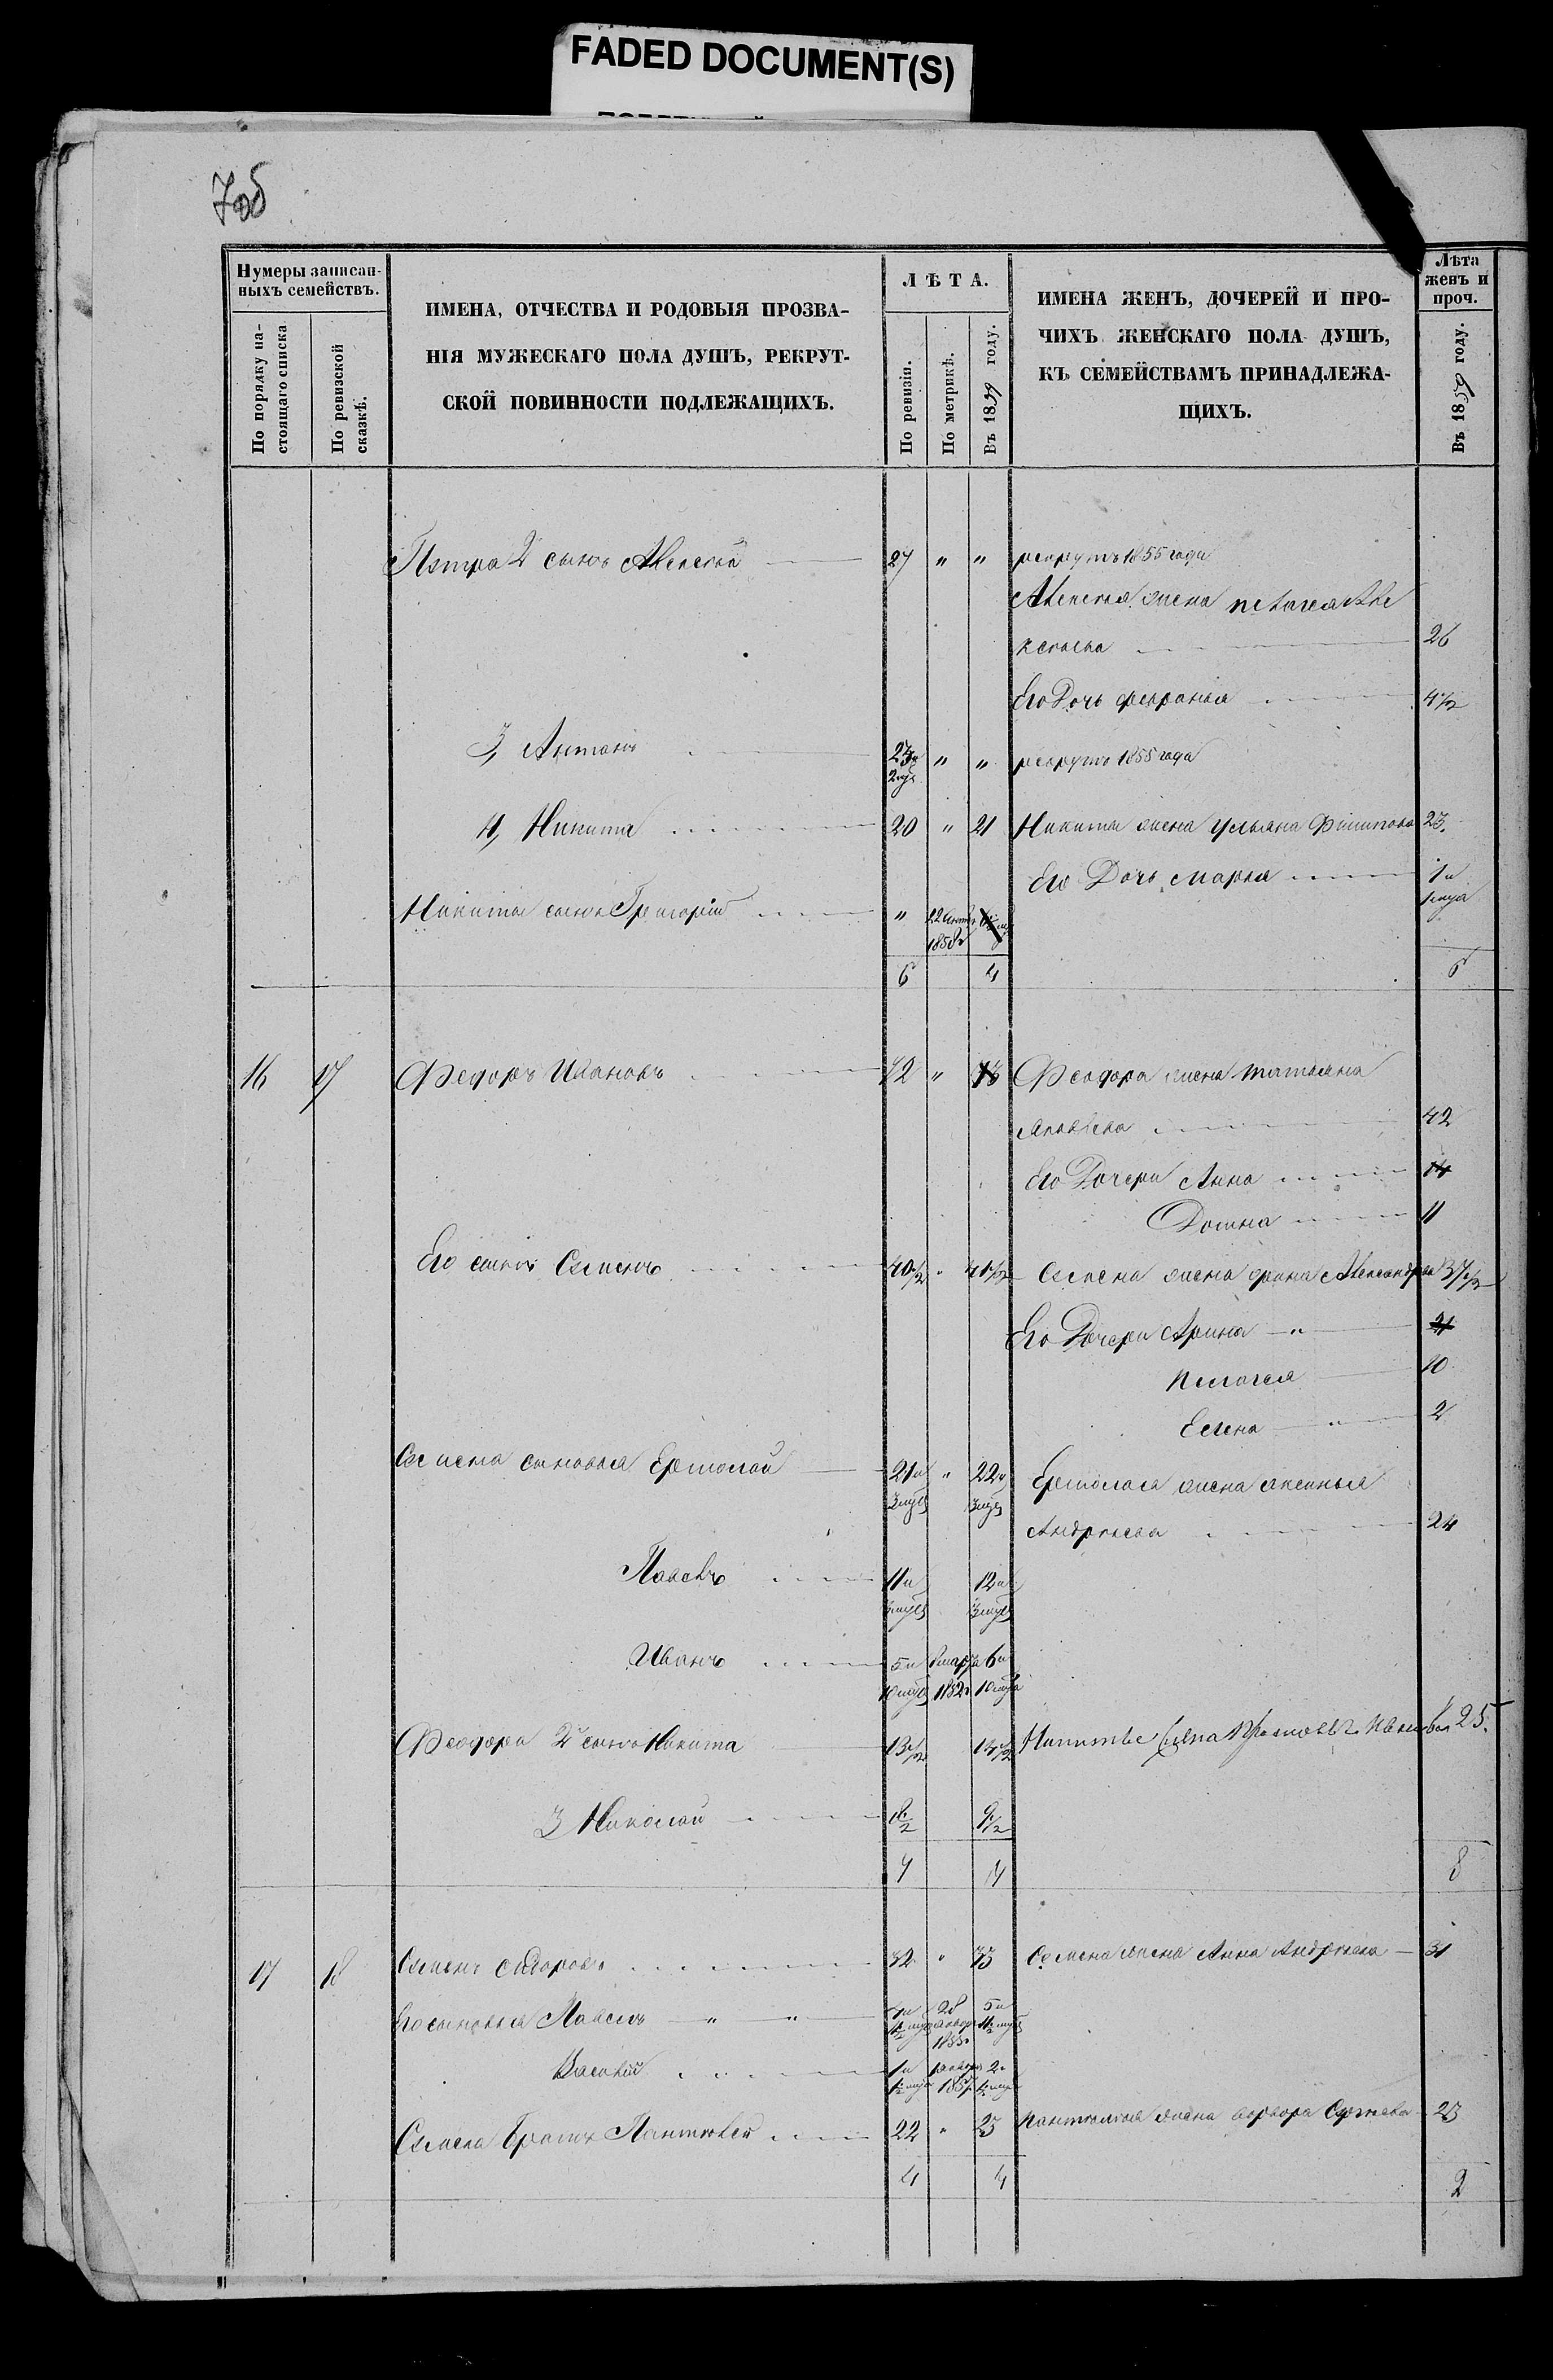 FADED DOCUMENT(S)
7об
Нумеры записан-
ныхъ семействъ.
По порядку на-
стоящаго списка
По ревизской
сказкѣ.
ИМЕНА, ОТЧЕСТВА И РОДОВЫЯ ПРОЗВА-
НІЯ МУЖЕСКАГО ПОЛА ДУШЪ, РЕКРУТ-
СКОЙ ПОВИННОСТИ ПОДЛЕЖАЩИХЪ.
ЛѢТА.
По ревизіи.
По метрикѣ.
Въ 1859 году.
ИМЕНА ЖЕНЪ, ДОЧЕРЕЙ И ПРО-
ЧИХЪ ЖЕНСКАГО ПОЛА ДУШЪ,
КЪ СЕМЕЙСТВАМЪ ПРИНАДЛЕЖА-
ЩИХЪ.
Лѣта
женъ и
проч.
Въ 1859 году.
Петра 2 сынъ Алексѣй 27 " " рекрутъ 1855 года
Алексѣя жена
26
Его Дочь 4 1/2
3, Антонъ " " рекрутъ 1855 года
4, Никита 20 " 21 Никиты жена Ульяна Филипова 23.
Его Дочь Марья 1 и
Никиты сынъ Григорій " 22
1858
6 4 6
16 17 Федоръ Ивановъ " Феодора жена татьяна
Яковлева 42
Его Дочери Анна 14
Домна 11
Его сынъ Семенъ 40 1/2 " 41 1/2 Семена жена Александр 37 1/2
Его Дочери Арина 21
Пелагея 10
Елена 2
Семена сыновья Ермолай 21 и " 22 и Ермолая жена Аксинья
3 мца 3 мца
Андреева 24
Павелъ 11 и 12 и
3 мца 3 мца
Иванъ 5 и 6 и
10 мца 1852 10 мца
Феодора 2й сынъ Никита 13 1/2 14 1/2 25.
3 Николай 8 1/2 9 1/2
7 7 8
17 18 Семенъ Сидоровъ 32 " 33 Семена жена Анна Андреева 31
Его сыновья Павелъ " " 28 5 и
1855
Василій 1 и 2 и
1857
Семена братъ Пантелей 22 " 23 Пантелея жена варвара Сергеева 23
4 4 2